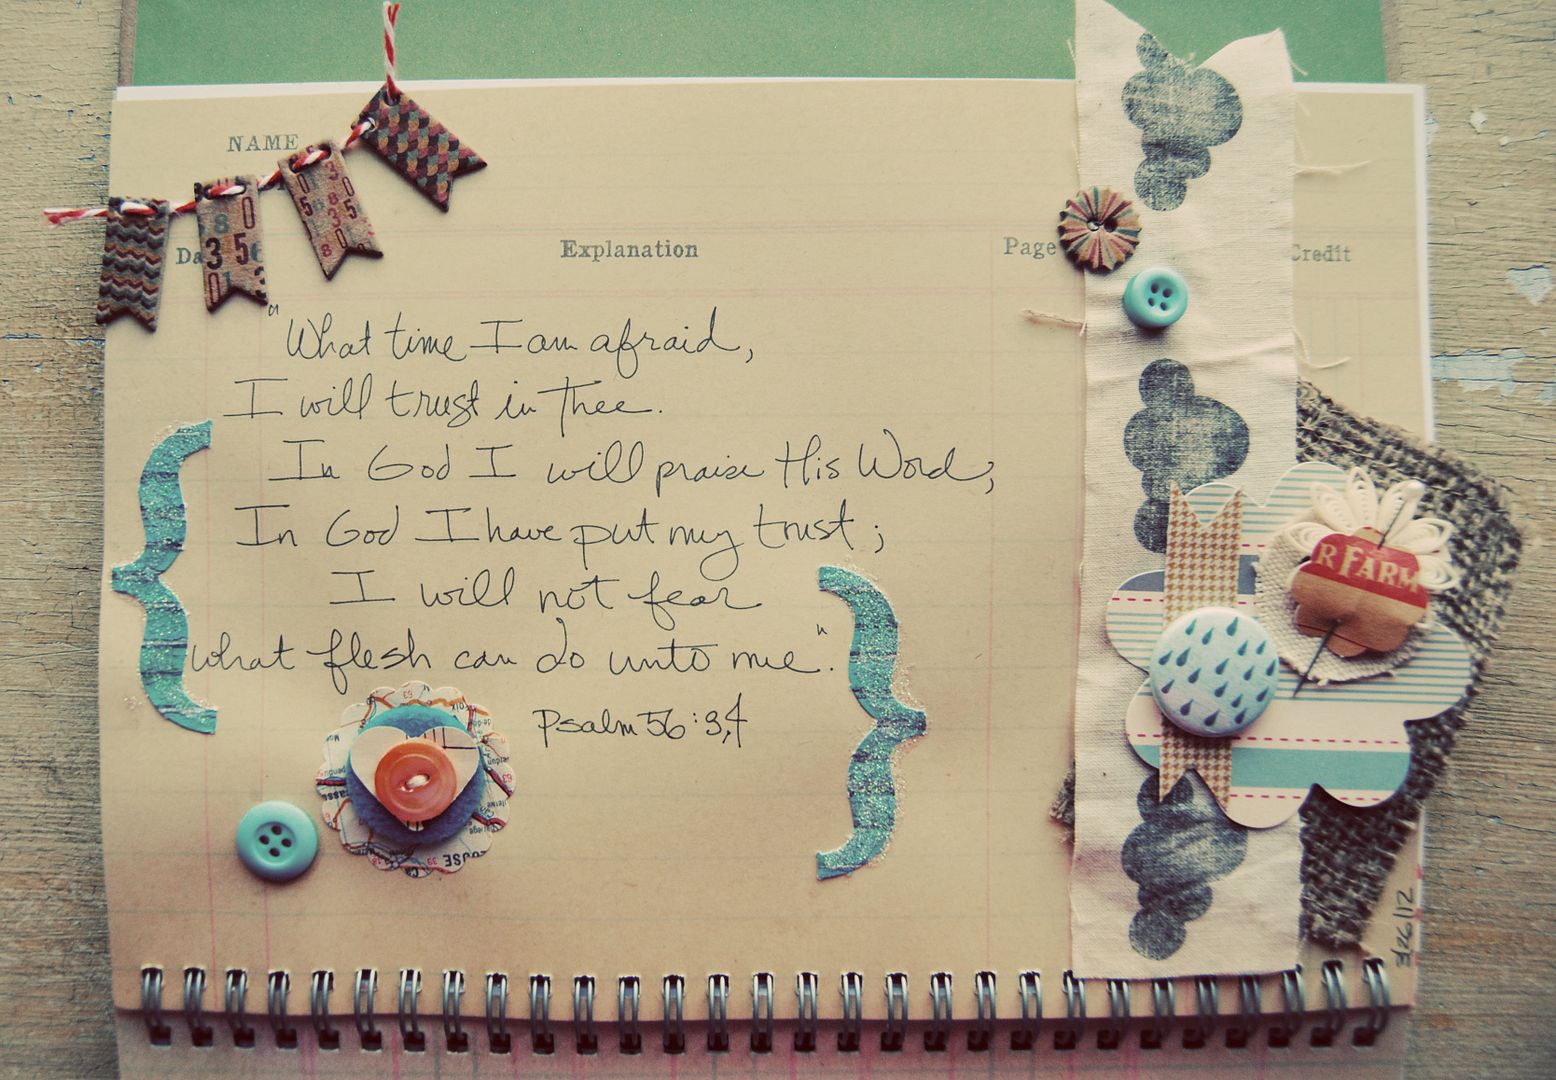 NAME
Explanation
Page
Credit
"What time I am afraid,
I will trust in Thee.
In God I will praise His Word,
In God I have put my trust;
I will not fear
what flesh can do unto me."
Psalm 56:3,4
R FARM
3/26/12